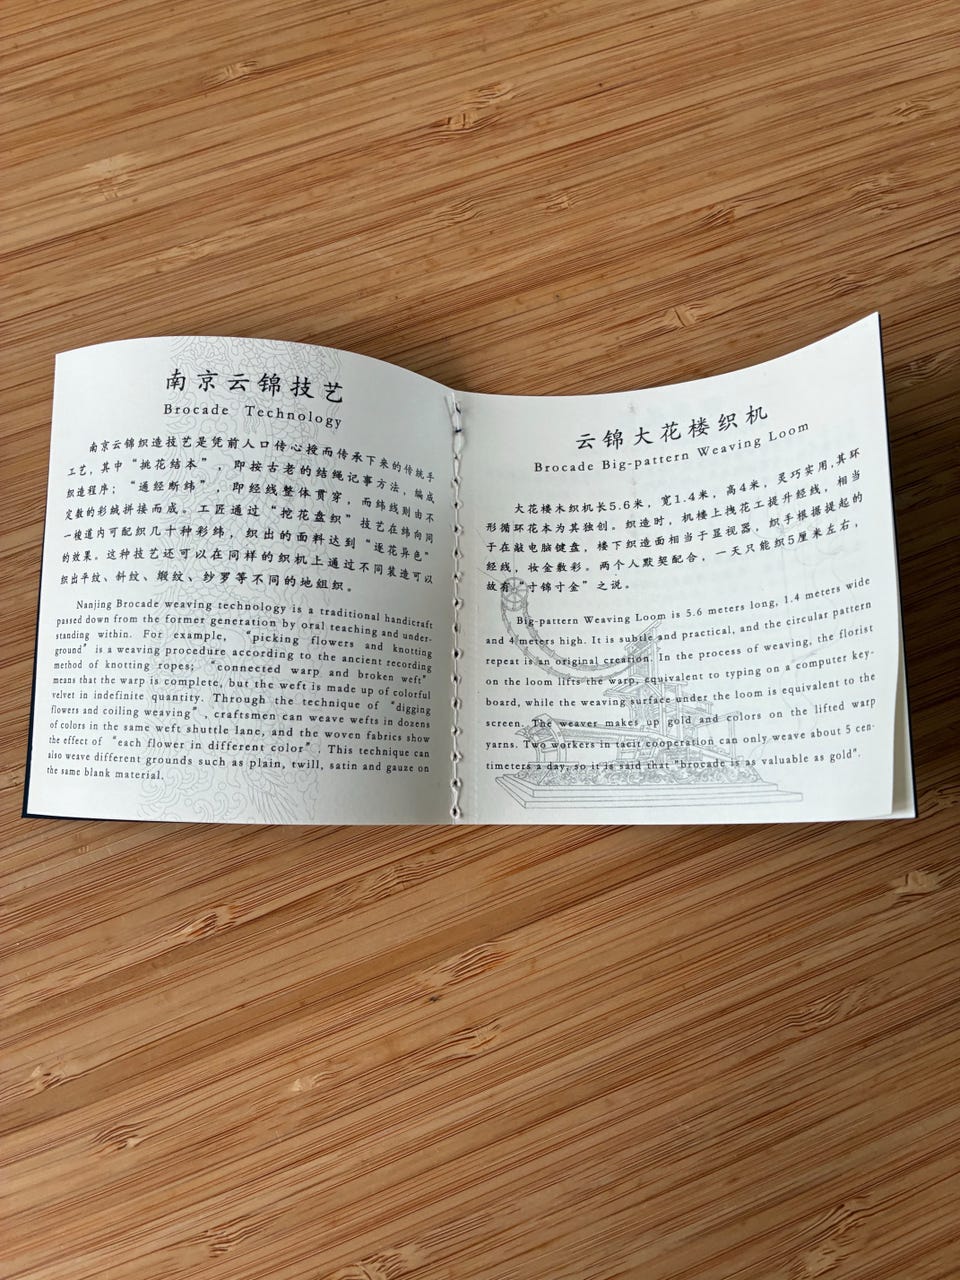 南京云锦技艺
Brocade Technology
南京云锦织造技艺是凭前人口传心授而传承下来的传统手
工艺，其中“挑花结本”，即按古老的结绳记事方法，编成
织造程序；“通经断纬”，即经线整体贯穿，而纬线则由不
定数的彩绒拼接而成。工匠通过“挖花盘织”技艺在纬向同
一梭道内可配织几十种彩纬，织出的面料达到“逐花异色”
的效果。这种技艺还可以在同样的织机上通过不同装造可以
织出平纹、斜纹、缎纹、纱罗等不同的地组织。
Nanjing Brocade weaving technology is a traditional handicraft
passed down from the former generation by oral teaching and under-
standing within. For example, “picking flowers and knotting
ground” is a weaving procedure according to the ancient recording
method of knotting ropes; “connected warp and broken weft”
means that the warp is complete, but the weft is made up of colorful
velvet in indefinite quantity. Through the technique of “digging
flowers and coiling weaving”, craftsmen can weave wefts in dozens
of colors in the same weft shuttle lane, and the woven fabrics show
the effect of “each flower in different color”. This technique can
also weave different grounds such as plain, twill, satin and gauze on
the same blank material.
云锦大花楼织机
Brocade Big-pattern Weaving Loom
大花楼木织机长5.6米，宽1.4米，高4米，灵巧实用,其环
形循环花本为其独创。织造时，机楼上拽花工提升经线，相当
于在敲电脑键盘，楼下织造面相当于显视器，织手根据提起的
经线，妆金敷彩。两个人默契配合，一天只能织5厘米左右，
故有“寸锦寸金”之说。
Big-pattern Weaving Loom is 5.6 meters long, 1.4 meters wide
and 4 meters high. It is subtle and practical, and the circular pattern
repeat is an original creation. In the process of weaving, the florist
on the loom lifts the warp, equivalent to typing on a computer key-
board, while the weaving surface under the loom is equivalent to the
screen. The weaver makes up gold and colors on the lifted warp
yarns. Two workers in tacit cooperation can only weave about 5 cen-
timeters a day, so it is said that "brocade is as valuable as gold".